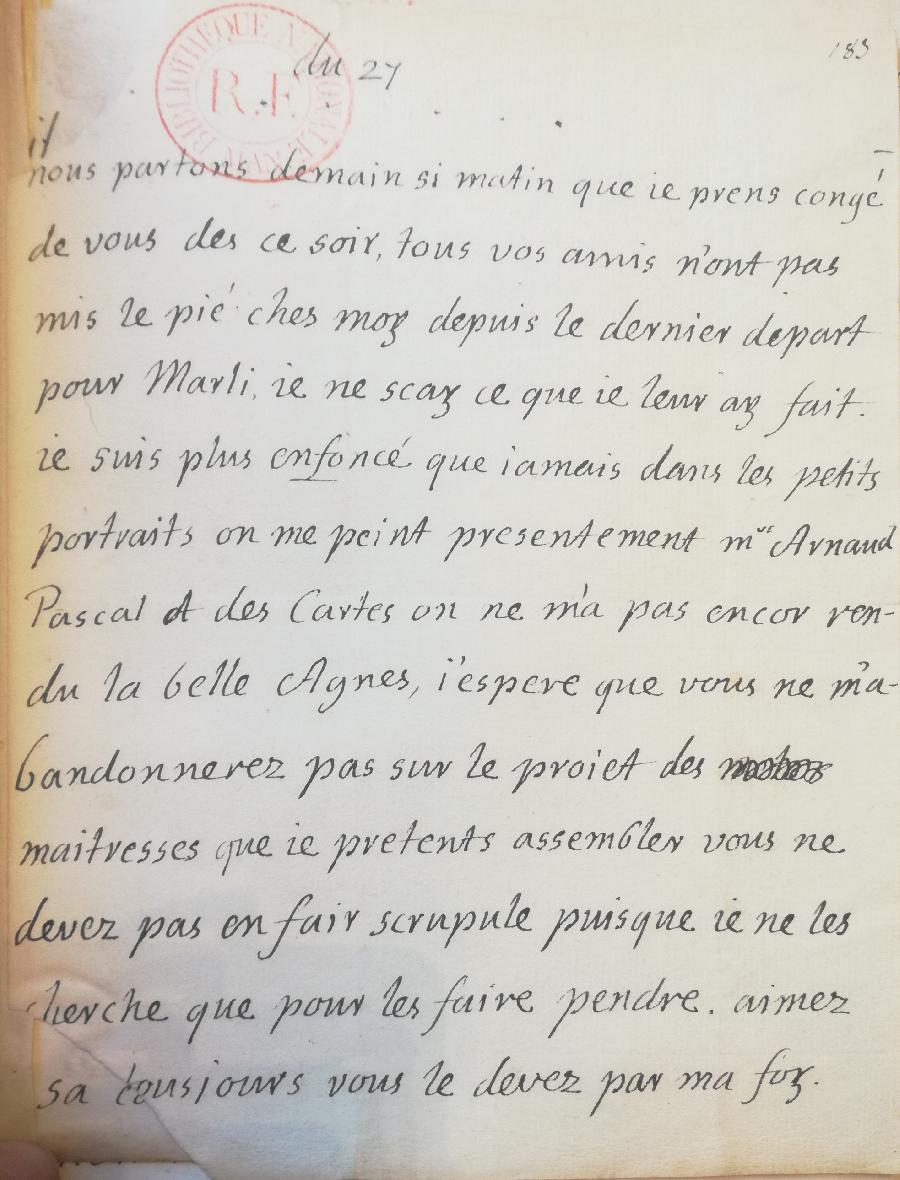 183
du 27
BIBLIOTHEQUE NATIONALE MSS R.F.
il
nous partons demain si matin que ie prens congé
de vous des ce soir, tous vos amis n'ont pas
mis le pié ches moy depuis le dernier depart
pour Marli, ie ne scay ce que ie leur ay fait.
ie suis plus enfoncé que iamais dans les petits
portraits on me peint presentement mrs Arnaud
Pascal et des Cartes on ne m'a pas encor ren-
du la belle Agnes, i'espere que vous ne m'a-
bandonnerez pas sur le proiet des
maitresses que ie pretents assembler vous ne
devez pas en fair scrupule puisque ie ne les
cherche que pour les faire pendre. aimez
sa tousjours vous le devez par ma foy.